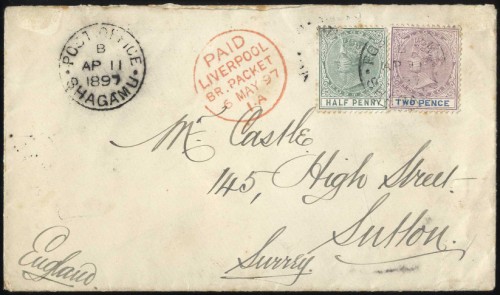 POST OFFICE
B
AP 11
1897
SHAGAMU
PAID
LIVERPOOL
BR. PACKET
6 MAY 97
1A
HALF PENNY
TWO PENCE
Mr. Castle
145, High Street.
Sutton.
Surrey.
England